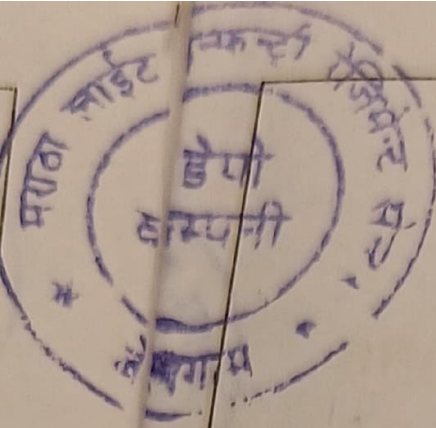 मराठा लाईट इन्फन्ट्री रेजिमेंट सेंटर
डेपो
कम्पनी
बेलगाम